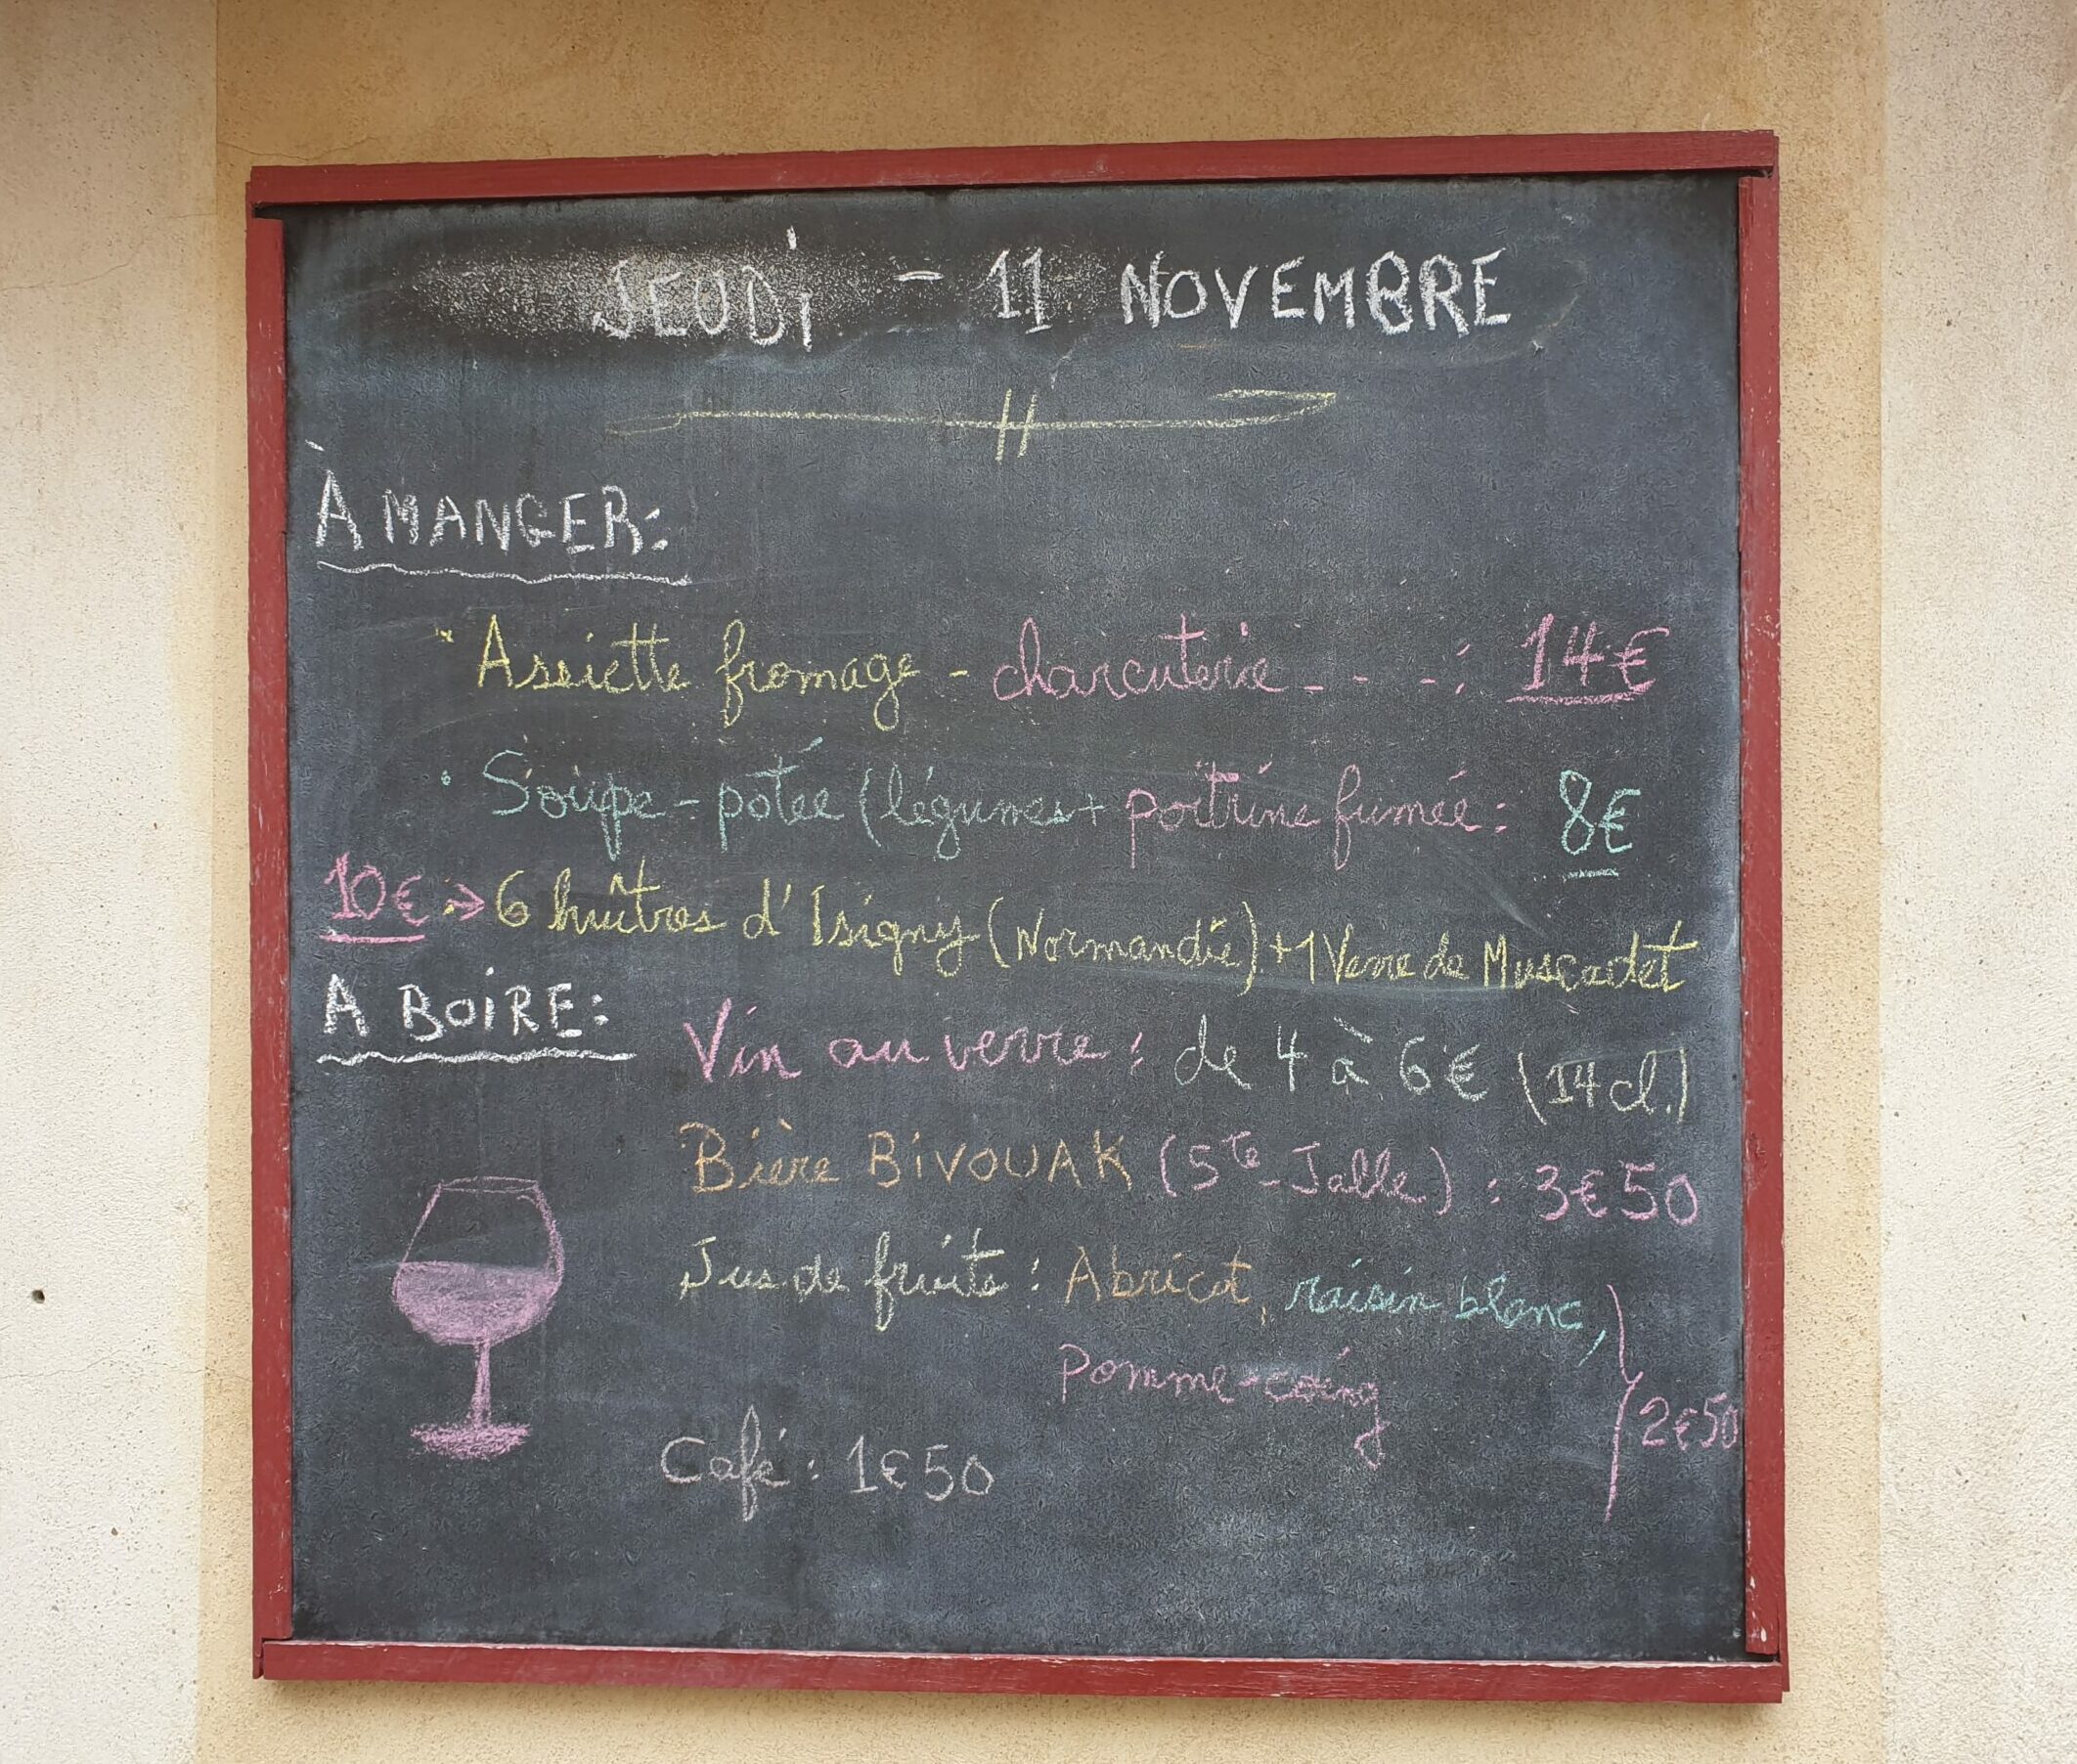 JEUDi - 11 NOVEMBRE
À MANGER:
Assiette fromage - charcuterie - - -: 14€
Soupe-potée (légumes + poitrine fumée: 8€
10€ → 6 huîtres d'Isigny (Normandie) + 1 Verre de Muscadet
A BOiRE:
Vin au verre: de 4 à 6€ (14cl.)
Bière BiVOUAK (Ste-Jalle) : 3€50
Jus de fruits : Abricot, raisin blanc,
Pomme-coing
2€50
Café: 1€50